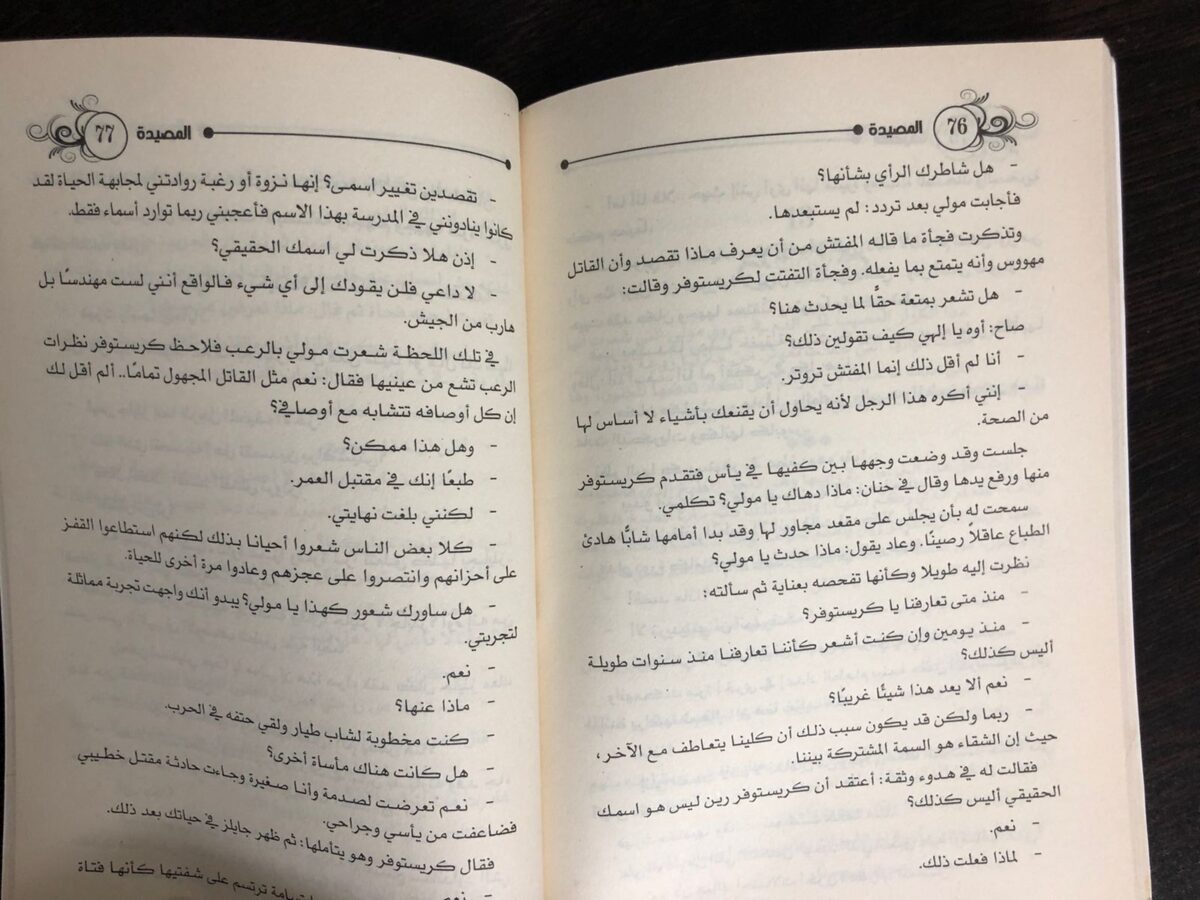 المصيدة 76
- هل شاطرك الرأي بشأنها؟
فأجابت مولي بعد تردد: لم يستبعدها.
وتذكرت فجأة ما قاله المفتش من أن يعرف ماذا تقصد وأن القاتل
مهووس وأنه يتمتع بما يفعله. وفجأة التفتت لكريستوفر وقالت:
- هل تشعر بمتعة حقًّا لما يحدث هنا؟
صاح: أوه يا إلهي كيف تقولين ذلك؟
- أنا لم أقل ذلك إنما المفتش تروتر.
إنني أكره هذا الرجل لأنه يحاول أن يقنعك بأشياء لا أساس لها
من الصحة.
جلست وقد وضعت وجهها بين كفيها في يأس فتقدم كريستوفر
منها ورفع يدها وقال في حنان: ماذا دهاك يا مولي؟ تكلمي.
سمحت له بأن يجلس على مقعد مجاور لها وقد بدا أمامها شابًّا هادئ
الطباع عاقلاً رصينًا. وعاد يقول: ماذا حدث يا مولي؟
نظرت إليه طويلا وكأنها تفحصه بعناية ثم سألته:
- منذ متى تعارفنا يا كريستوفر؟
- منذ يومين وإن كنت أشعر كأننا تعارفنا منذ سنوات طويلة
أليس كذلك؟
- نعم ألا يعد هذا شيئًا غريبًا؟
- ربما ولكن قد يكون سبب ذلك أن كلينا يتعاطف مع الآخر،
حيث إن الشقاء هو السمة المشتركة بيننا.
فقالت له في هدوء وثقة: أعتقد أن كريستوفر رين ليس هو اسمك
الحقيقي أليس كذلك؟
- نعم.
- لماذا فعلت ذلك.
المصيدة 77
- تقصدين تغيير اسمي؟ إنها نزوة أو رغبة روادتني لمجابهة الحياة لقد
كانوا ينادونني في المدرسة بهذا الاسم فأعجبني ربما توارد أسماء فقط.
- إذن هلا ذكرت لي اسمك الحقيقي؟
- لا داعي فلن يقودك إلى أي شيء فالواقع أنني لست مهندسًا بل
هارب من الجيش.
في تلك اللحظة شعرت مولي بالرعب فلاحظ كريستوفر نظرات
الرعب تشع من عينيها فقال: نعم مثل القاتل المجهول تمامًا.. ألم أقل لك
إن كل أوصافه تتشابه مع أوصافي؟
- وهل هذا ممكن؟
- طبعًا إنك في مقتبل العمر.
- لكنني بلغت نهايتي.
- كلا بعض الناس شعروا أحيانا بذلك لكنهم استطاعوا القفز
على أحزانهم وانتصروا على عجزهم وعادوا مرة أخرى للحياة.
- هل ساورك شعور كهذا يا مولي؟ يبدو أنك واجهت تجربة مماثلة
لتجربتي.
- نعم.
- ماذا عنها؟
- كنت مخطوبة لشاب طيار ولقي حتفه في الحرب.
- هل كانت هناك مأساة أخرى؟
- نعم تعرضت لصدمة وأنا صغيرة وجاءت حادثة مقتل خطيبي
فضاعفت من يأسي وجراحي.
فقال كريستوفر وهو يتأملها: ثم ظهر جايلز في حياتك بعد ذلك.
- نعم ترتسم على شفتيها كأنها فتاة